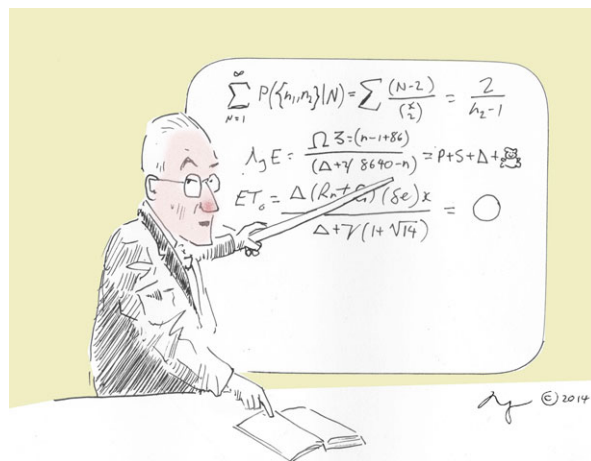 ∞
∑ P({n₁,n₂}|N) = ∑ (N-2)/(x/2) = 2/(n₂-1)
N=1
λgE = Ω3=(n-1+86)/(Δ+γ 8690-n) = P+S+Δ+
ETₒ = Δ(Rn+G)(δe)x/(Δ+γ(1+√14)) = O
© 2014